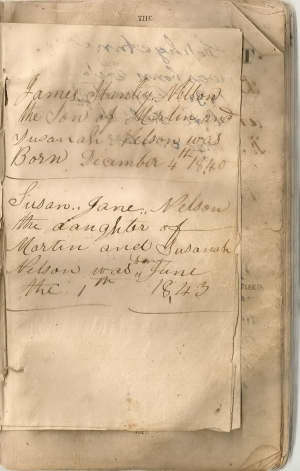 THE
James Stanley Nelson
the Son of Martin and
Susanah Nelson was
Born December 4th 1840
Susan Jane Nelson
the daughter of
Martin and Susanah
Nelson was born June
the 1th 1843